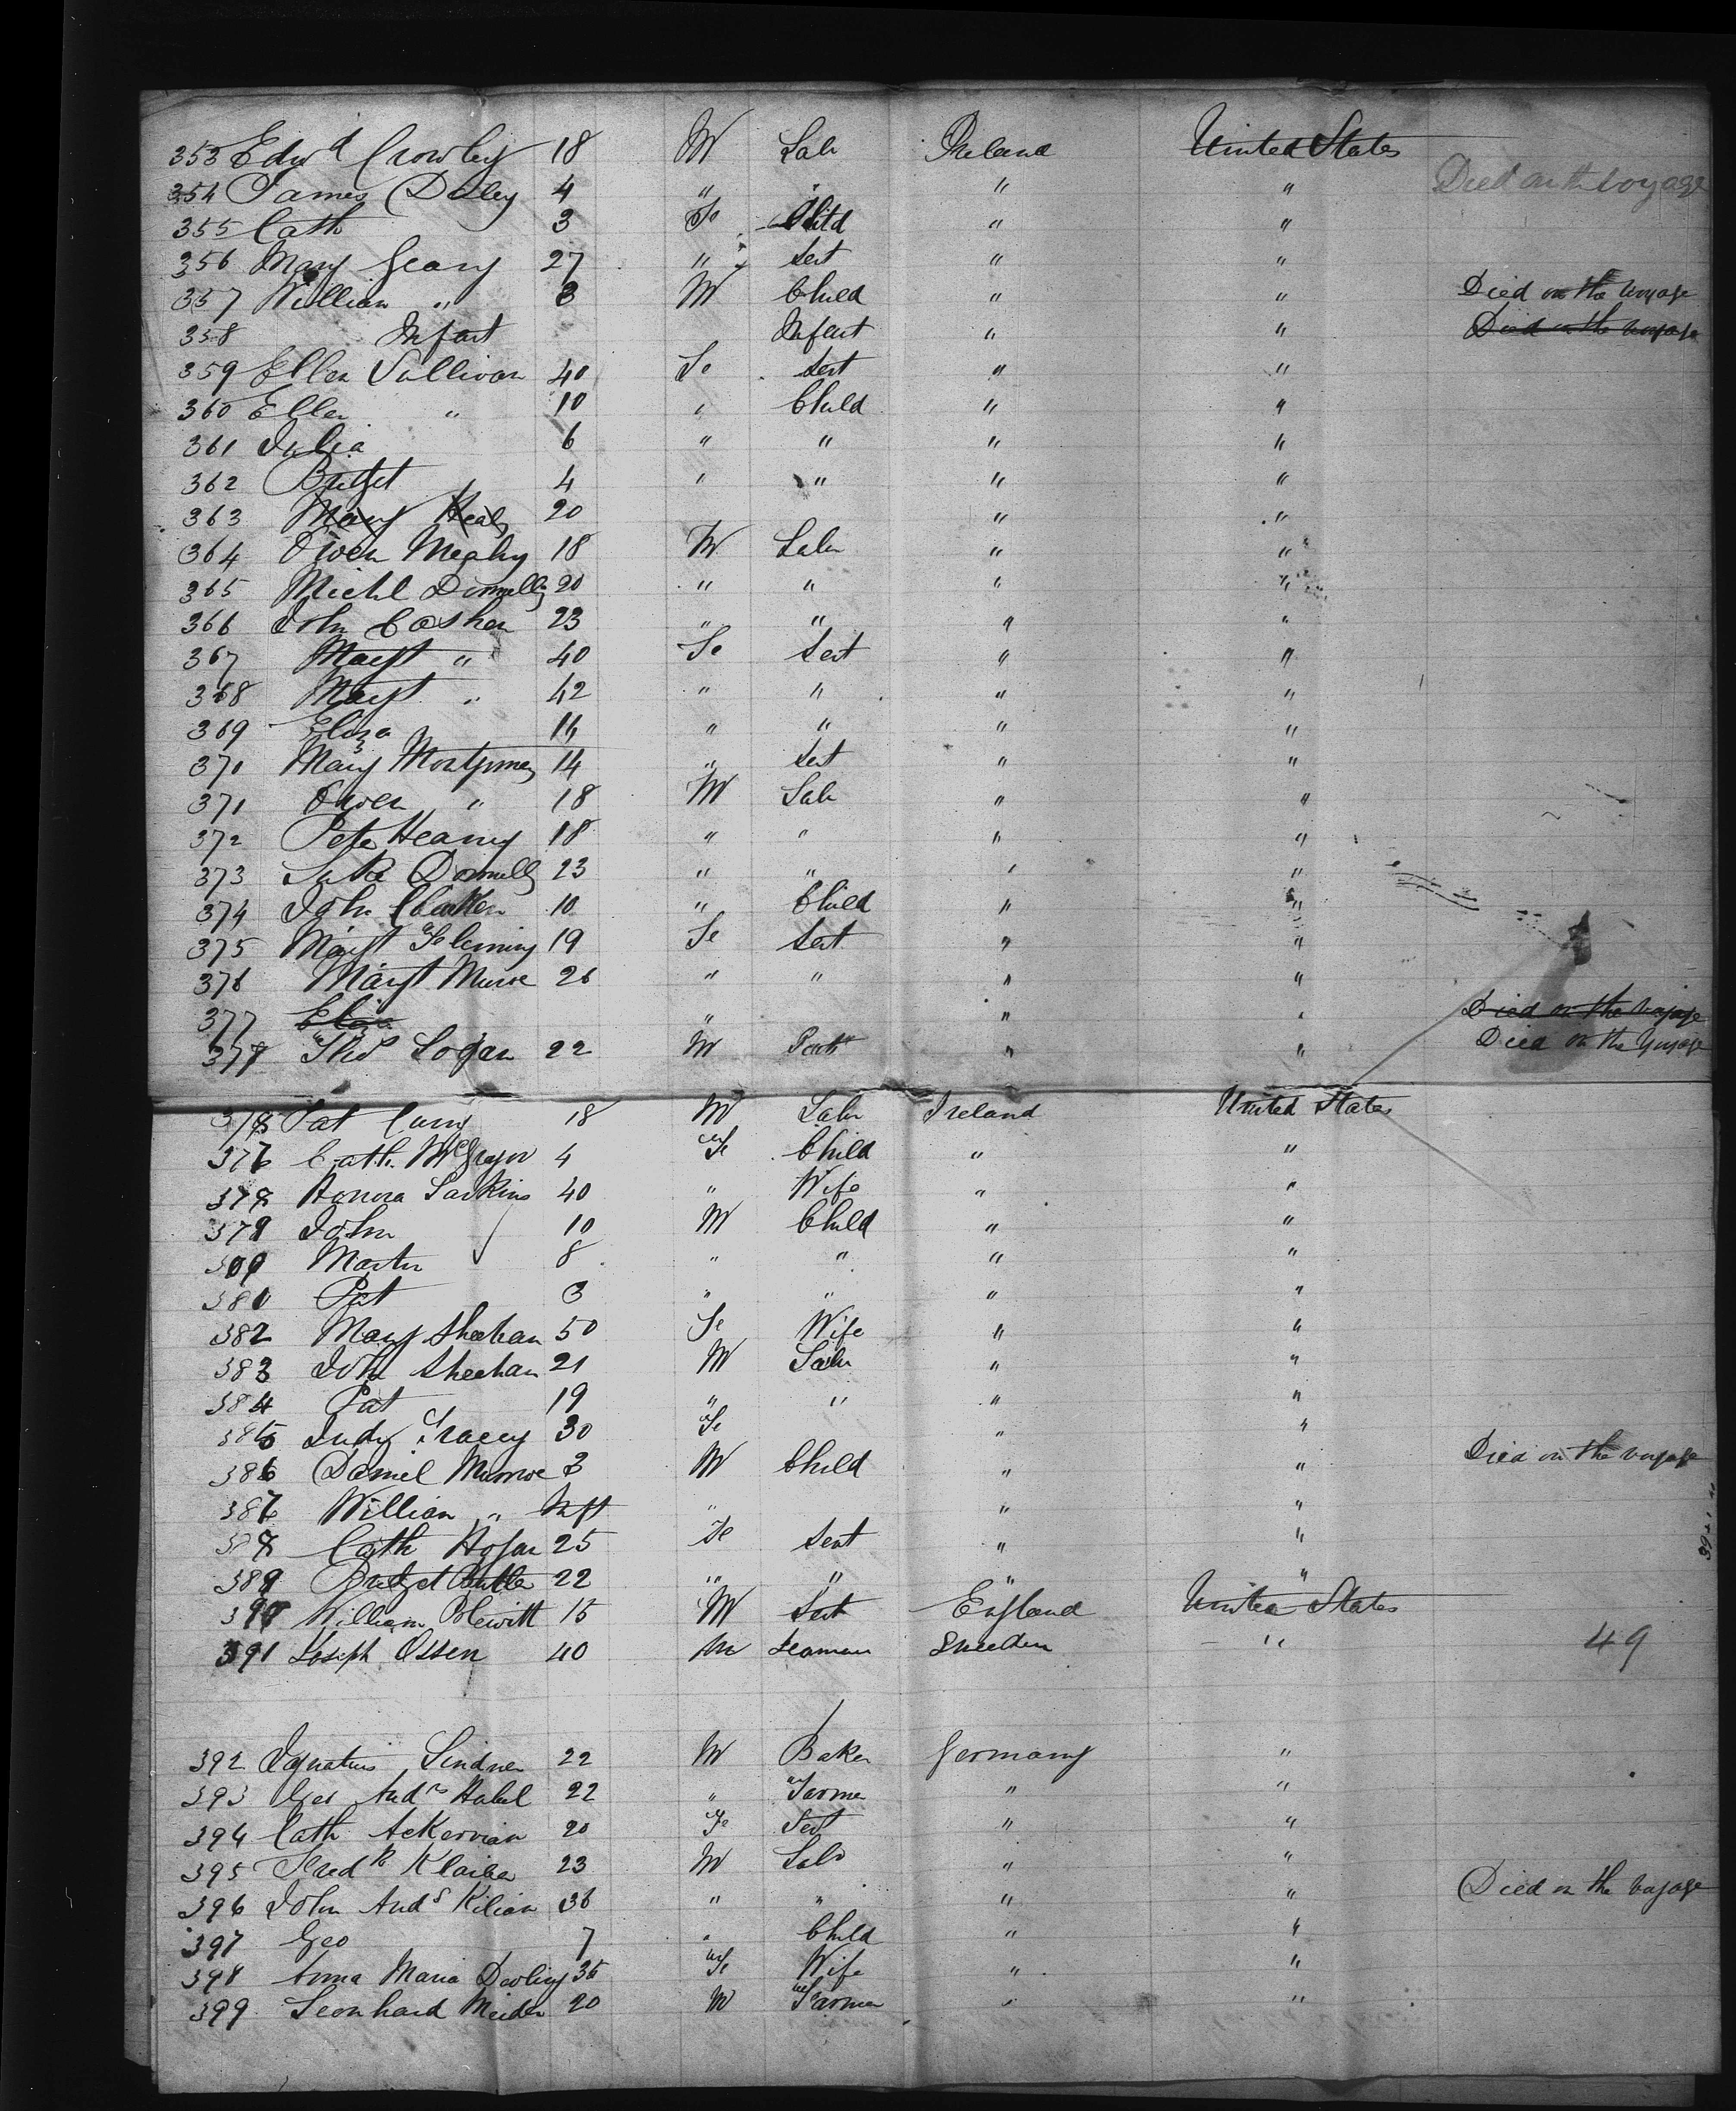 353 Edwd Crowley 18 M Labr Ireland United States
354 James Daley 4 " " " " Died on the voyage
355 Cath 3 Fe Child " "
356 Mary Geary 27 " Sert " "
357 William " 3 M Child " " Died on the voyage
358 Infant Infant " " Died on the voyage
359 Ellen Sullivan 40 Fe Sert " "
360 Ellen " 10 " Child " "
361 Julia 6 " " " "
362 Bridget 4 " " " "
363 Mary Healy 20 " "
364 Owen Meahy 18 M Labr " "
365 Michl Donnelly 20 " " " "
366 John Coshen 23 " " " "
367 Margt " 40 Fe Sert " "
368 Margt " 42 " " " "
369 Eliza 11 " " " "
370 Mary Montgomery 14 " Sert " "
371 Owen " 18 M Lab " "
372 Peter Heaney 18 " " " "
373 Donnelly 23 " " " "
374 John 10 " Child " "
375 Margt Fleming 19 Fe Sert " "
376 Margt Munroe 26 " " " "
377 Eliza " " " Died on the voyage
378 Thos Logan 22 M " " Died on the voyage
378 Pat Curry 18 M Labr Ireland United States
376 Cath McGregor 4 Fe Child " "
378 Honora Larkins 40 " Wife " "
379 John 10 M Child " "
Martin 8 " " " "
380 Pat 3 " " " "
382 Mary Sheehan 50 Fe Wife " "
383 John Sheehan 21 M Labr " "
384 Pat 19 " " " "
385 Judy Tracey 30 Fe " "
386 Daniel Munroe 3 M Child " " Died on the voyage
387 William " Inft " " "
388 Cath Hogan 25 Fe Sert " "
389 Bridget Butler 22 " " " "
390 William Blewitt 15 M Sert England United States
391 Joseph Ossen 40 M Seaman Sweden " 49
392 Ignatius Lindner 22 M Baker Germany "
393 Geo Andrs Habel 22 " Farmer " "
394 Cath Ackerman 20 Fe Sert " "
395 Fredk Klaiber 23 M Labr " "
396 John Ands Kilian 36 " " " " Died on the voyage
397 Geo 7 " Child " "
398 Anna Maria Darling 35 Fe Wife " "
399 Leonhard Meider 20 M Farmer " "